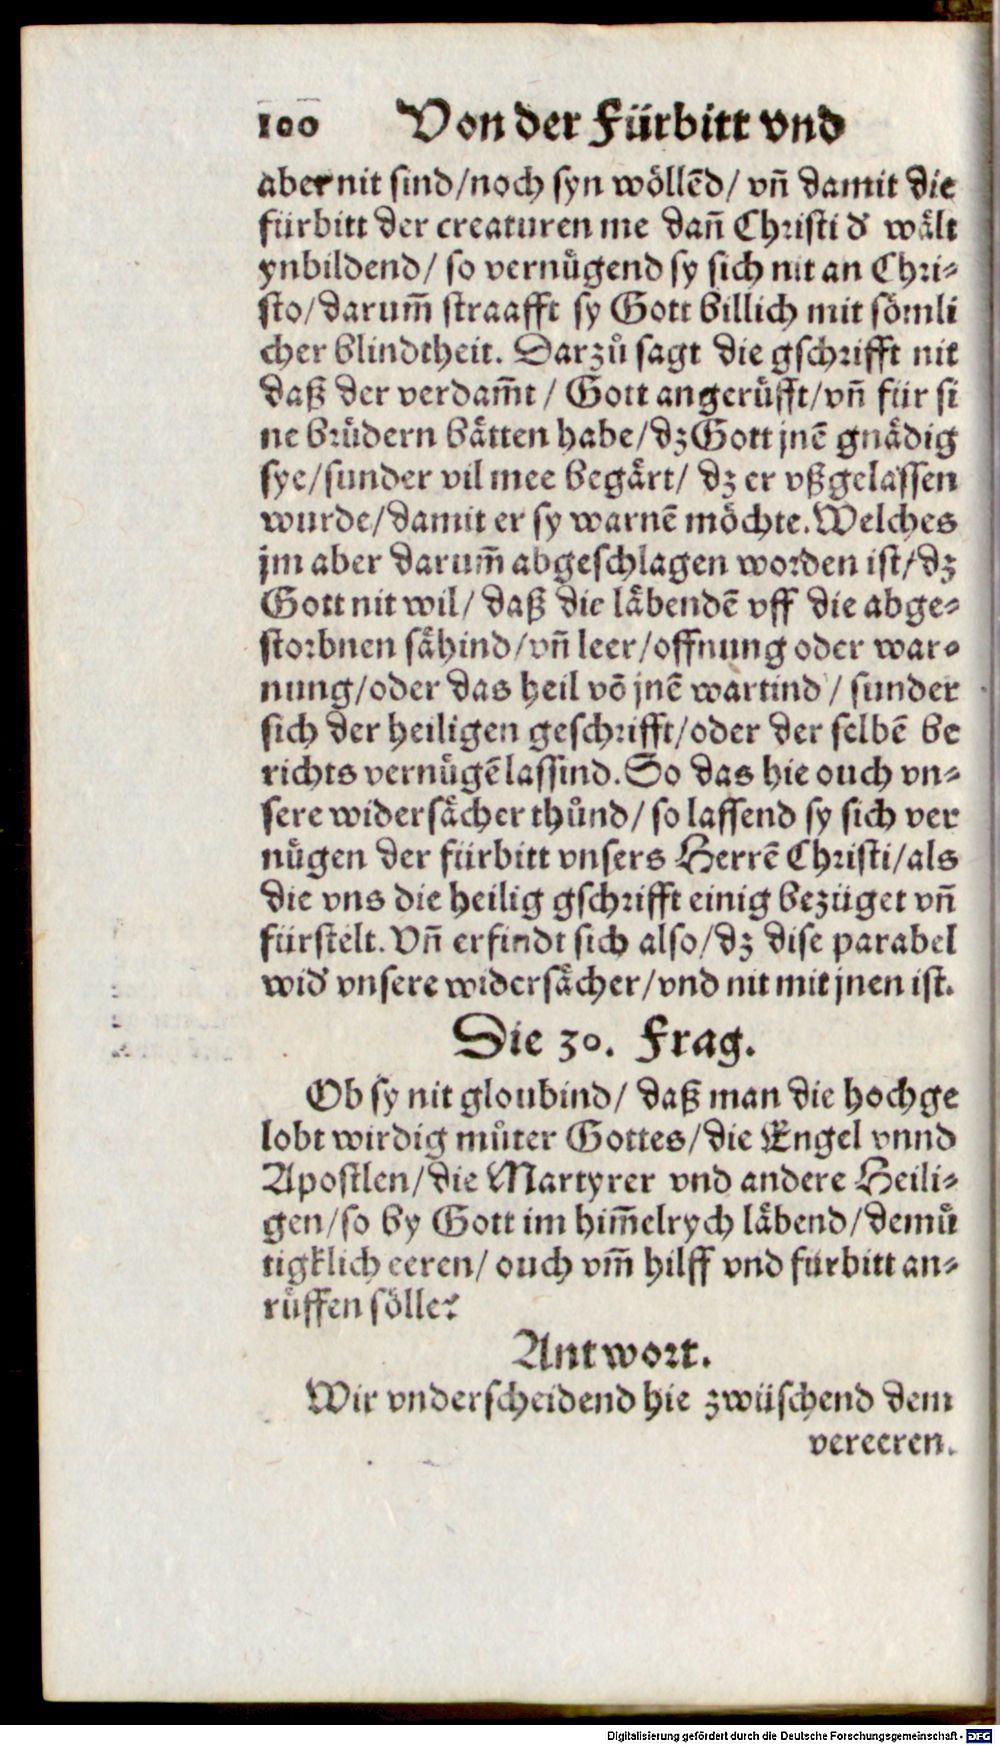 100 Von der Fürbitt vnd
aber nit sind/noch syn wöllēd/ vñ damit die
fürbitt der creaturen me dañ Christi d' wält
ynbildend/ so vernuͤgend sy sich nit an Chri-
sto/darum̃ straafft sy Gott billich mit sömli
cher blindtheit. Darzuͦ sagt die gschrifft nit
daß der verdam̃t / Gott angeruͤfft/vñ für si
ne bruͤdern bätten habe/dz Gott jnē gnädig
sye/sunder vil mee begärt/ dz er vßgelassen
wurde/damit er sy warnē möchte. Welches
jm aber darum̃ abgeschlagen worden ist/dz
Gott nit wil/ daß die läbendē vff die abge-
storbnen sähind/vñ leer/offnung oder war-
nung/oder das heil vō jnē wartind / sunder
sich der heiligen geschrifft/oder der selbē be
richts vernuͤgē lassind. So das hie ouch vn-
sere widersächer thuͦnd/ so lassend sy sich ver
nuͤgen der fürbitt vnsers Herrē Christi/als
die vns die heilig gschrifft einig bezüget vñ
fürstelt. Vñ erfindt sich also/dz dise parabel
wid' vnsere widersächer/vnd nit mit jnen ist.
Die 30. Frag.
Ob sy nit gloubind/ daß man die hochge
lobt wirdig muͦter Gottes/die Engel vnnd
Apostlen/die Martyrer vnd andere Heili-
gen/so by Gott im him̃elrych läbend/demuͤ
tigklich eeren/ ouch vm̃ hilff vnd fürbitt an-
ruͤffen sölle?
Antwort.
Wir vnderscheidend hie zwüschend dem
vereeren.
Digitalisierung gefördert durch die Deutsche Forschungsgemeinschaft - DFG